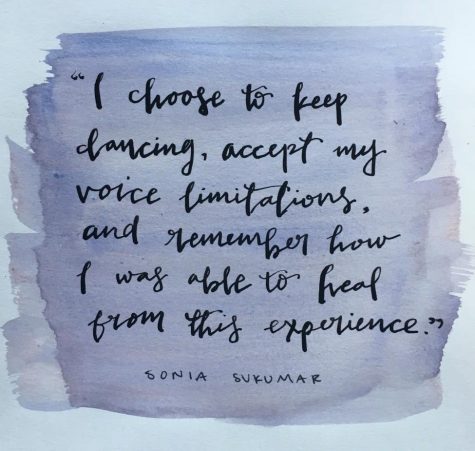 "I choose to keep
dancing, accept my
voice limitations,
and remember how
I was able to heal
from this experience."
SONIA SUKUMAR